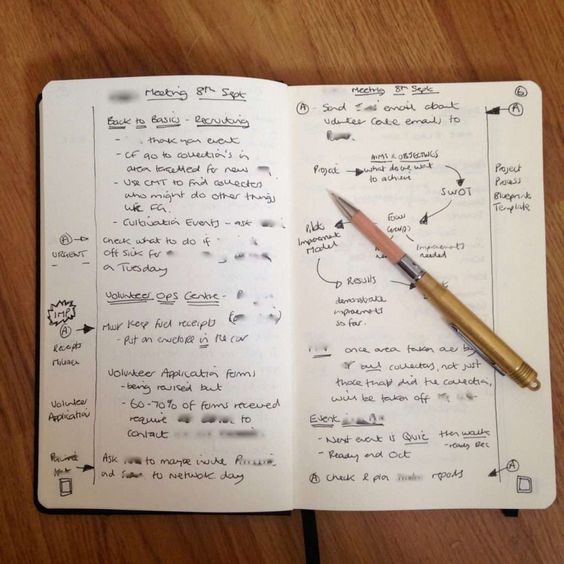 Meeting 8th Sept
Back to Basics - Recruiting
- thank you event
- CF go to collection's in
area targetted for new
- Use CMT to find collectors
who might do other things
- Cultivation Events - ask
A
URGENT
Check what to do if
off sick for
a Tuesday
Volunteer Ops Centre -
IMP
A
Receipts
Mileage
Must keep fuel receipts
- Put an envelope in the car
Volunteer
Application
Volunteer Application forms
- being revised but
- 60-70% of forms received
require to
contact
Ask to maybe invite
and to Network day
Meeting 8th Sept
6
A - Send email about
A
volunteer emails to
Project
Process
Blueprint
Template
Project
AIMS & OBJECTIVES
what do we want
to achieve
SWOT
Focus
Groups
Pilot
Improvement
Model
Improvements
needed
Results
demonstrate
improvements
so far.
once area taken are by
and collectors, not just
those that did the collection,
will be taken off
Event
- Next event is Quiz then walk
- Ready End Oct
- ready Dec
A check & plan reports
A